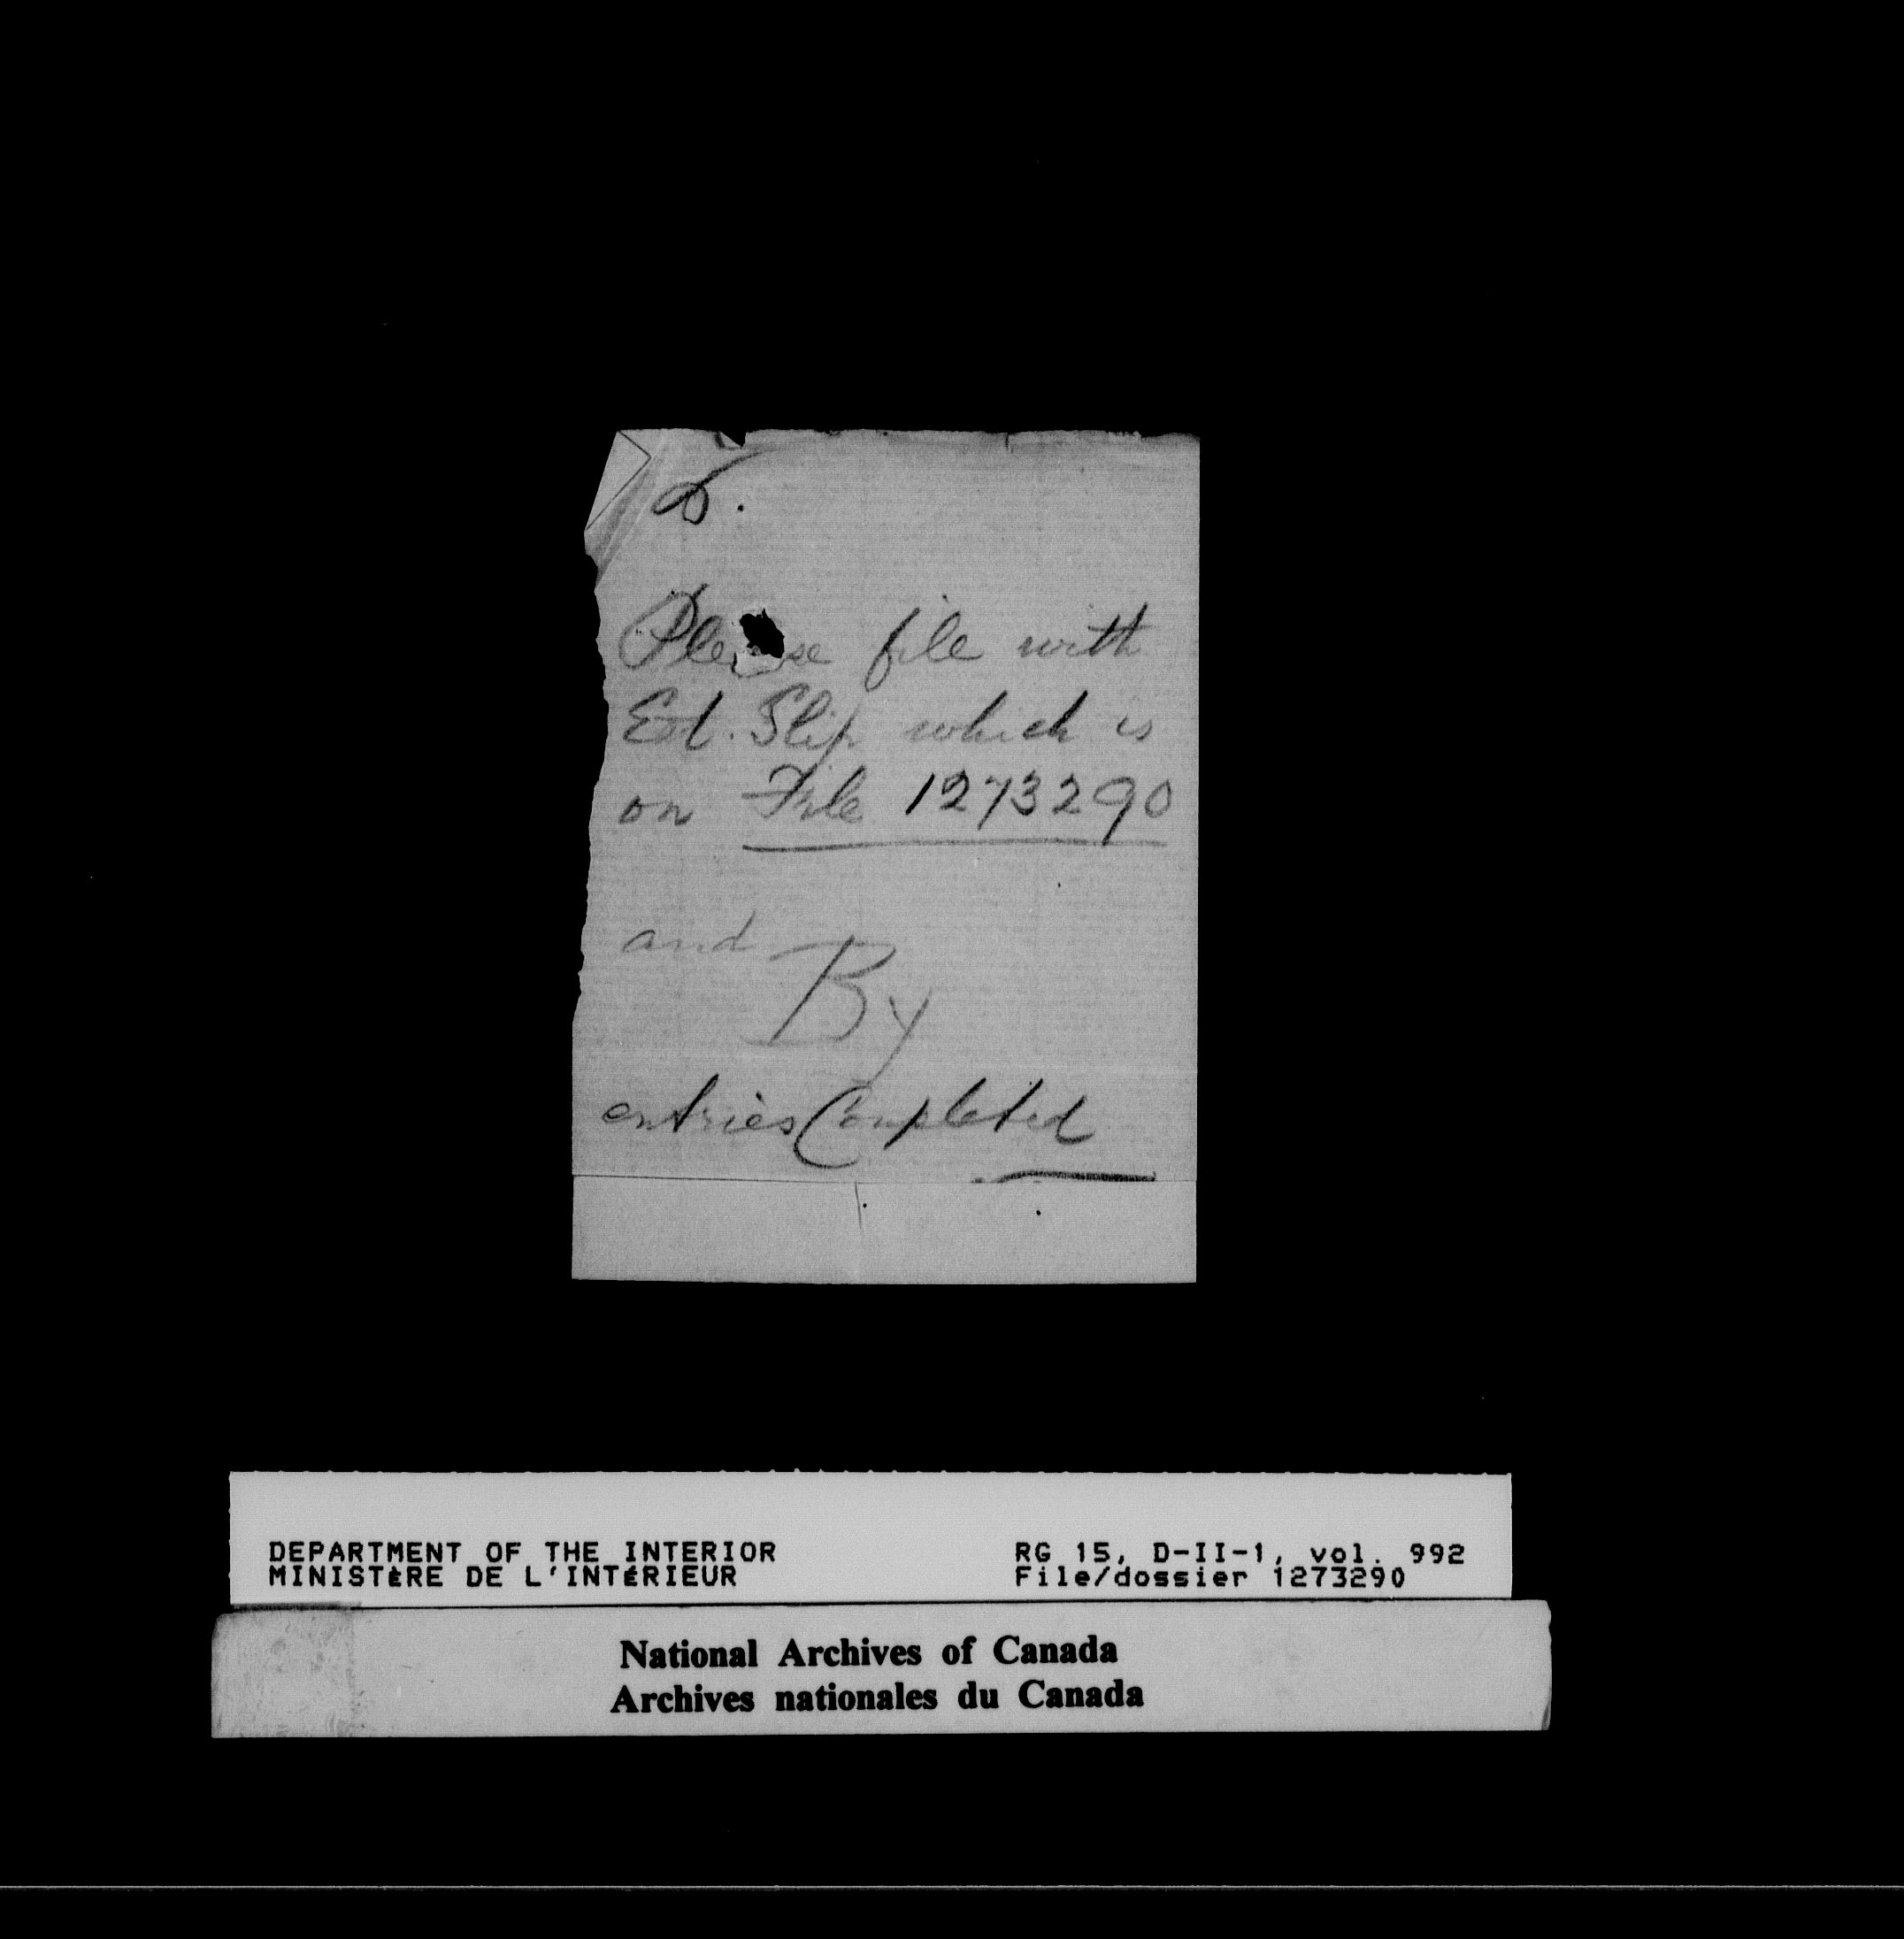 D.
Please file with
Et. Slip which is
on File 1273290
and
By
entries Completed
DEPARTMENT OF THE INTERIOR
MINISTÈRE DE L'INTÉRIEUR
RG 15, D-II-1, vol. 992
File/dossier 1273290
National Archives of Canada
Archives nationales du Canada